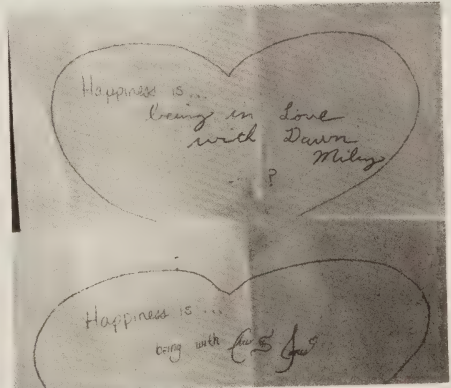 Happiness is...
being in Love
with Dawn
Miley
... ?
Happiness is...
being with